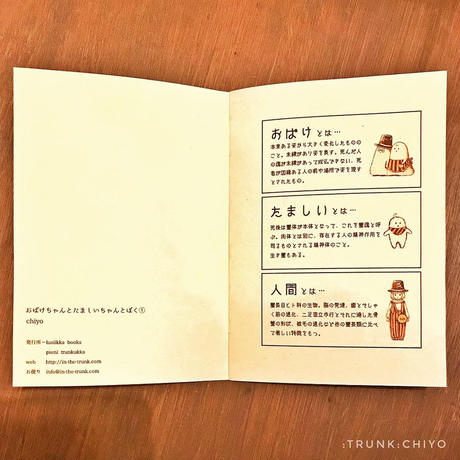 おばけちゃんとたましいちゃんとぼく①
chiyo
発行所ーtuulikka books
pieni trunkukka
web http://in-the-trunk.com
お便り info@in-the-trunk.com
おばけとは…
本来ある姿から大きく変化したものの
こと。未練があり姿を表す。死んだ人
の魂が未練があって成仏できない、死
者が因縁ある人の前や場所で姿を現す
とされたもの。
たましいとは…
死後は霊体が本体となって、これを霊魂と呼
ぶ。肉体とは別に、存在する人の精神作用を
司るものとされる精神体のこと。
生き霊もある。
人間とは…
霊長目ヒト科の生物。脳の発達、歯とでしゃ
く筋の退化、二足直立歩行とそれに適した骨
盤の形状、被毛の退化など他の霊長類に比べ
て著しい特徴をもつ。
:TRUNK:CHIYO